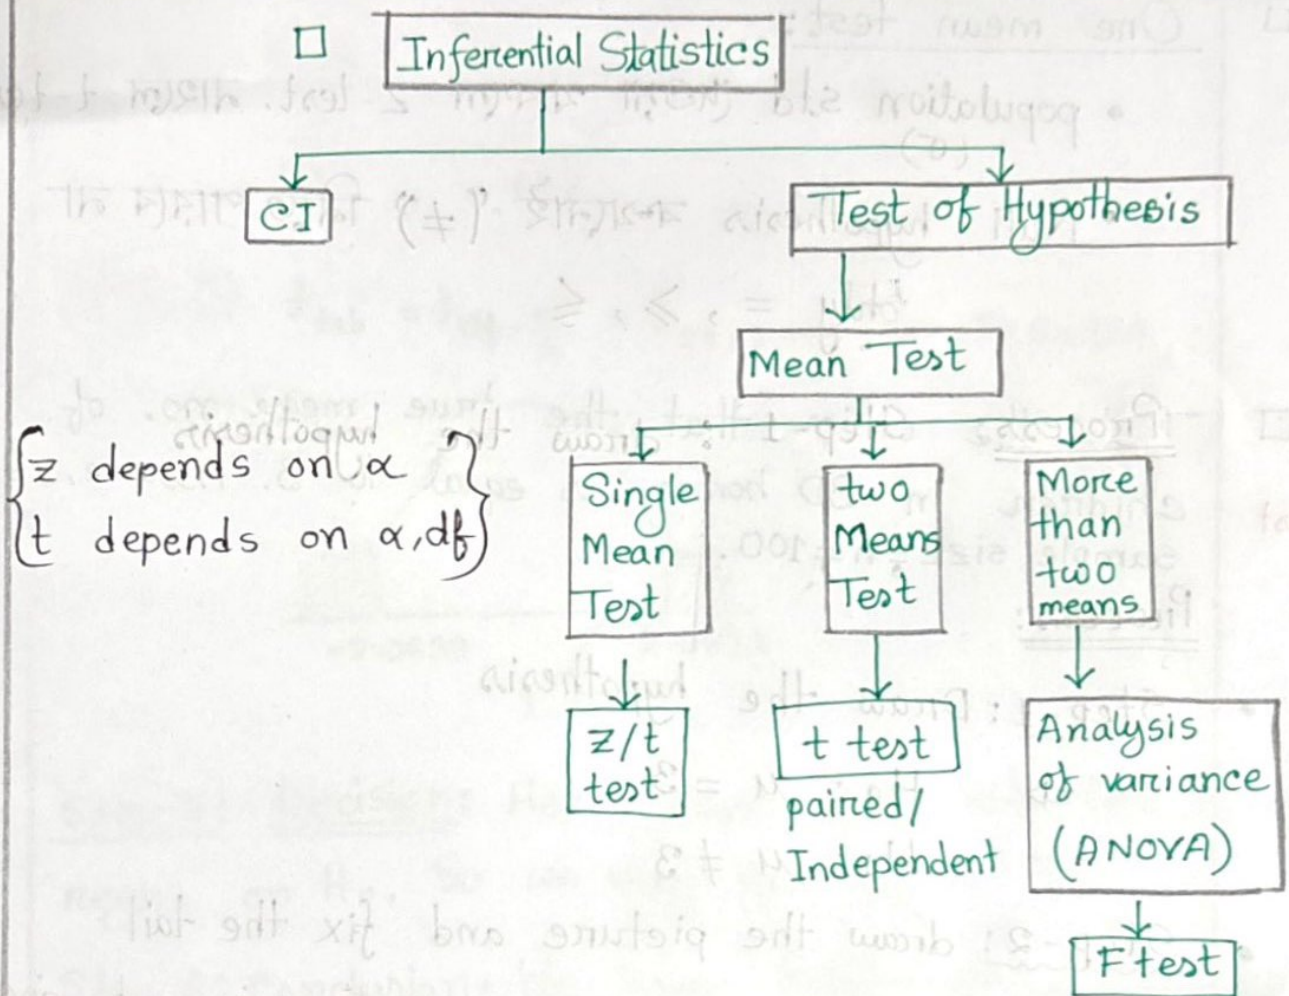 Inferential Statistics
CI
Test of Hypothesis
Mean Test
z depends on α
t depends on α, df
Single
Mean
Test
two
Means
Test
More
than
two
means
z/t
test
t test
paired/
Independent
Analysis
of variance
(ANOVA)
F test